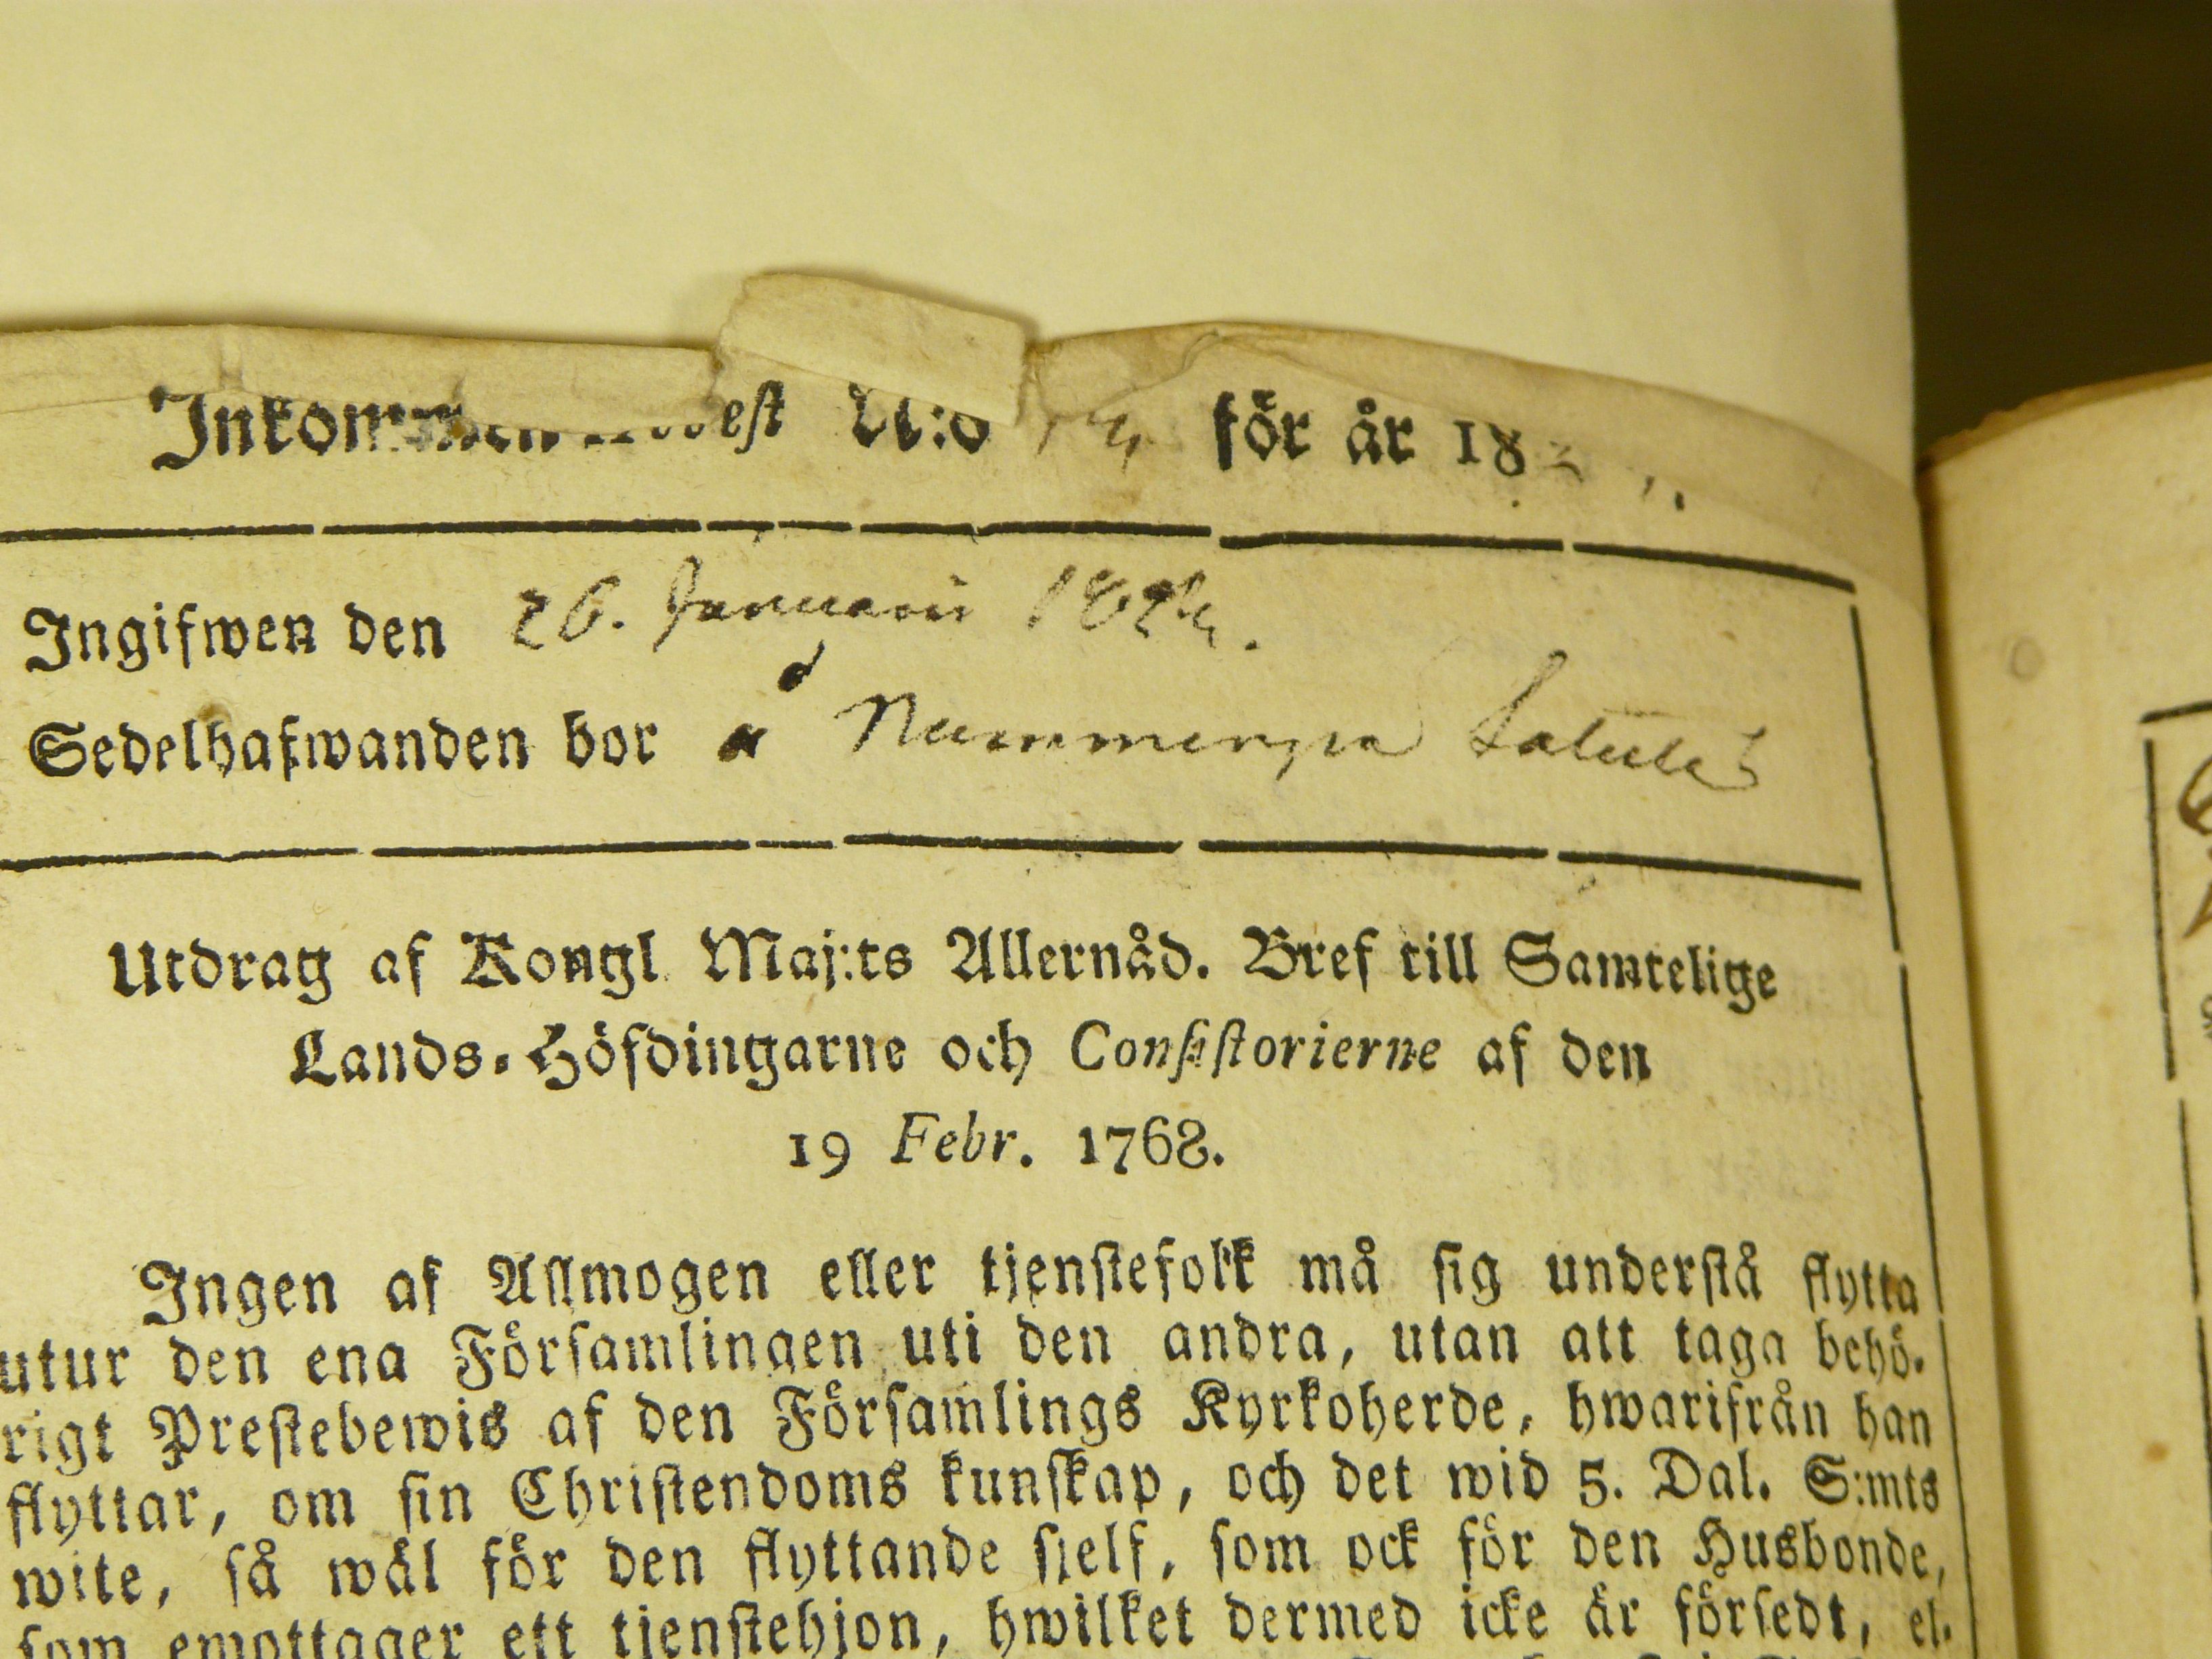 Inkommen Attest N:o 14 för år 182
Ingifwen den 26. Januarii 1824.
Sedelhafwanden bor å Nummenpä
Utdrag af Kongl. Maj:ts Allernåd. Bref till Samtelige
Lands-Höfdingarne och Consistorierne af den
19 Febr. 1768.
Ingen af Allmogen eller tjenstefolk må sig understå flytta
utur den ena Församlingen uti den andra, utan att taga behö-
rigt Prestebewis af den Församlings Kyrkoherde, hwarifrån han
flyttar, om sin Christendoms kunskap, och det wid 5. Dal. S:mts
wite, så wäl för den flyttande sjelf, som ock för den Husbonde,
som emottager ett tjenstehjon, hwilket dermed icke är försedt, el-